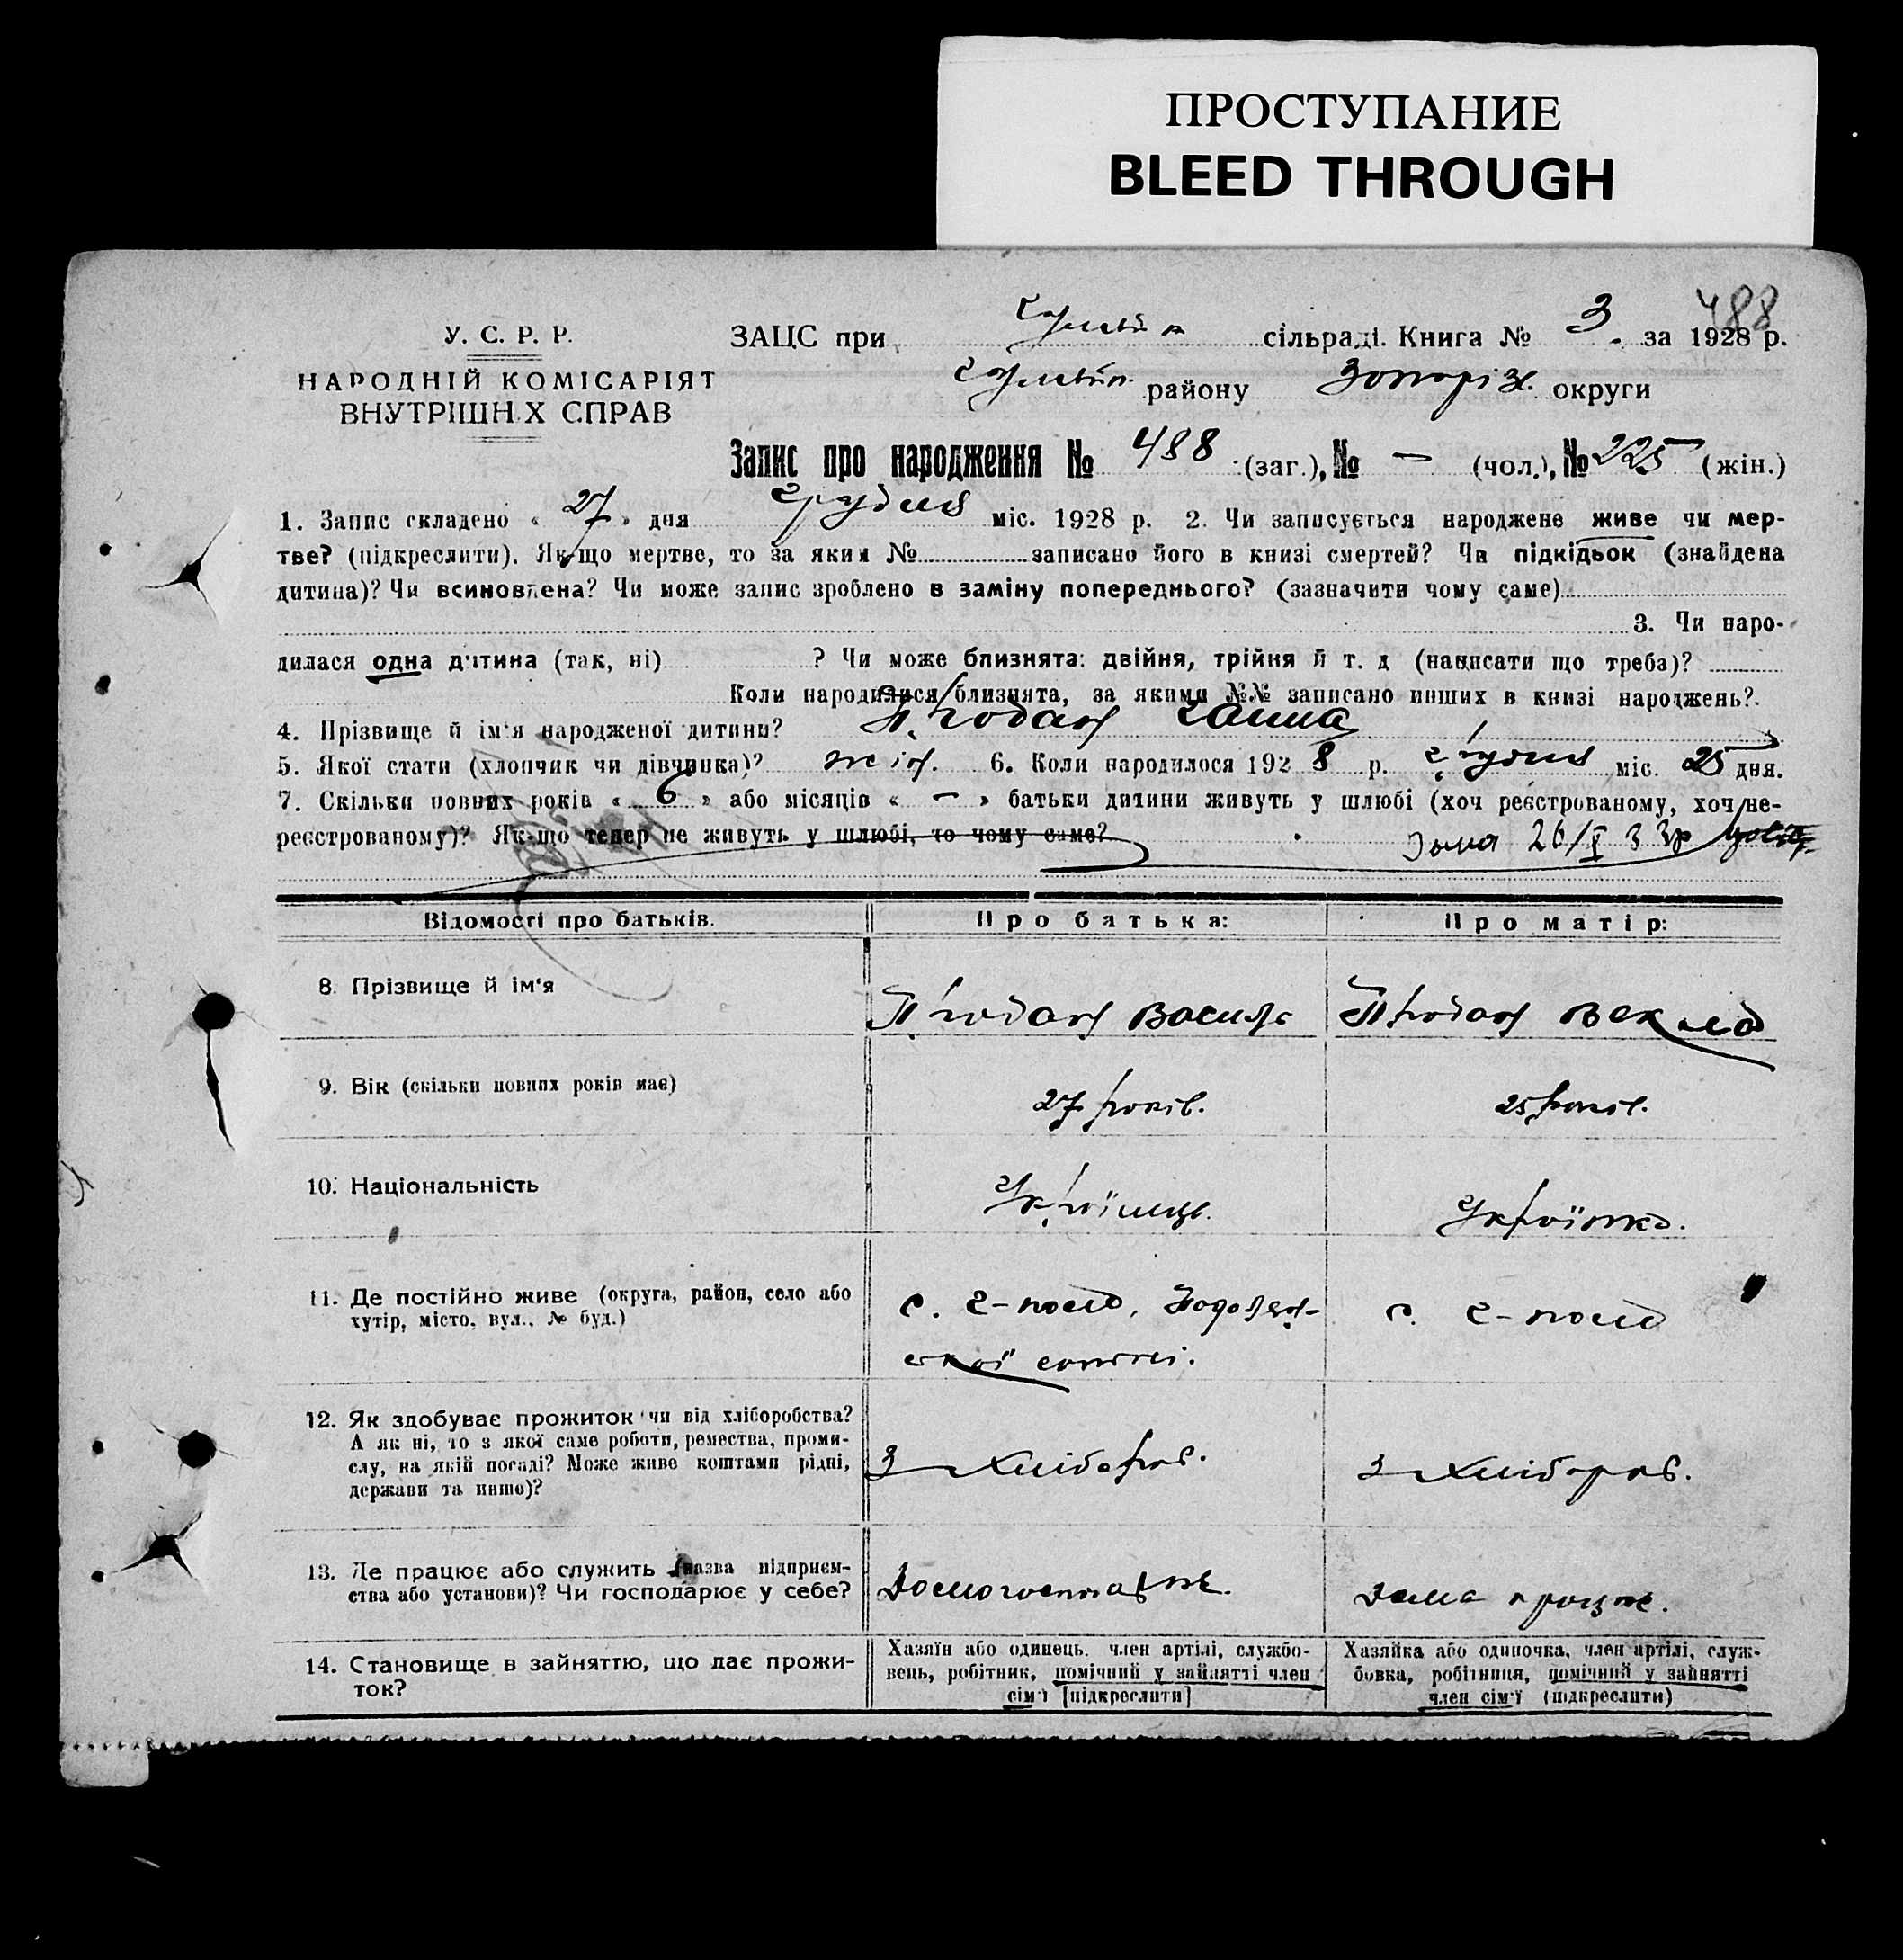 ПРОСТУПАНИЕ
BLEED THROUGH
488
У. С. Р. Р.
НАРОДНІЙ КОМІСАРІЯТ
ВНУТРІШНИХ СПРАВ
ЗАЦС при Гуляйп сільраді. Книга № 3 за 1928 р.
Гуляйп. району Запоріж. округи
Запис про народження № 488 (заг.), № — (чол.), № 225 (жін.)
1. Запис складено « 27 » дня Грудня міс. 1928 р. 2. Чи записується народжене живе чи мер-
тве? (підкреслити). Якщо мертве, то за яким № записано його в книзі смертей? Чи підкідьок (знайдена
дитина)? Чи всиновлена? Чи може запис зроблено в заміну попереднього? (зазначити чому саме)
3. Чи наро-
дилася одна дитина (так, ні) ? Чи може близнята: двійня, трійня й т. д (написати що треба)?
Коли народилися близнята, за якими №№ записано инших в книзі народжень?
4. Прізвище й ім'я народженої дитини? Продан Ганна
5. Якої стати (хлопчик чи дівчинка)? жін. 6. Коли народилося 1928 р. Грудня міс. 25 дня.
7. Скільки повних років « 6 » або місяців « — » батьки дитини живуть у шлюбі (хоч реєстрованому, хоч не-
реєстрованому)? Якщо тепер не живуть у шлюбі, то чому саме? 26/X 33р
Відомості про батьків. Про батька: Про матір:
8. Прізвище й ім'я Продан Василь Продан Векла
9. Вік (скільки повних років має) 27 років. 25 років.
10. Національність Українець. Українка.
11. Де постійно живе (округа, район, село або
хутір, місто, вул., № буд.) с. Г-поле, Подолян-
ської сотні. с. Г-поле
12. Як здобуває прожиток чи від хліборобства?
А як ні, то з якої саме роботи, ремества, проми-
слу, на якій посаді? Може живе коштами рідні,
держави та инше)? З хлібороб. З хлібороб.
13. Де працює або служить (назва підприєм-
ства або установи)? Чи господарює у себе? Дома працює.
14. Становище в зайняттю, що дає прожи-
ток?
Хазяїн або одинець. член артілі, службо-
вець, робітник, помічний у зайнятті член
сім'ї [підкреслити]
Хазяйка або одиночка, член артілі, служ-
бовка, робітниця, помічний у зайнятті
член сім'ї (підкреслити)